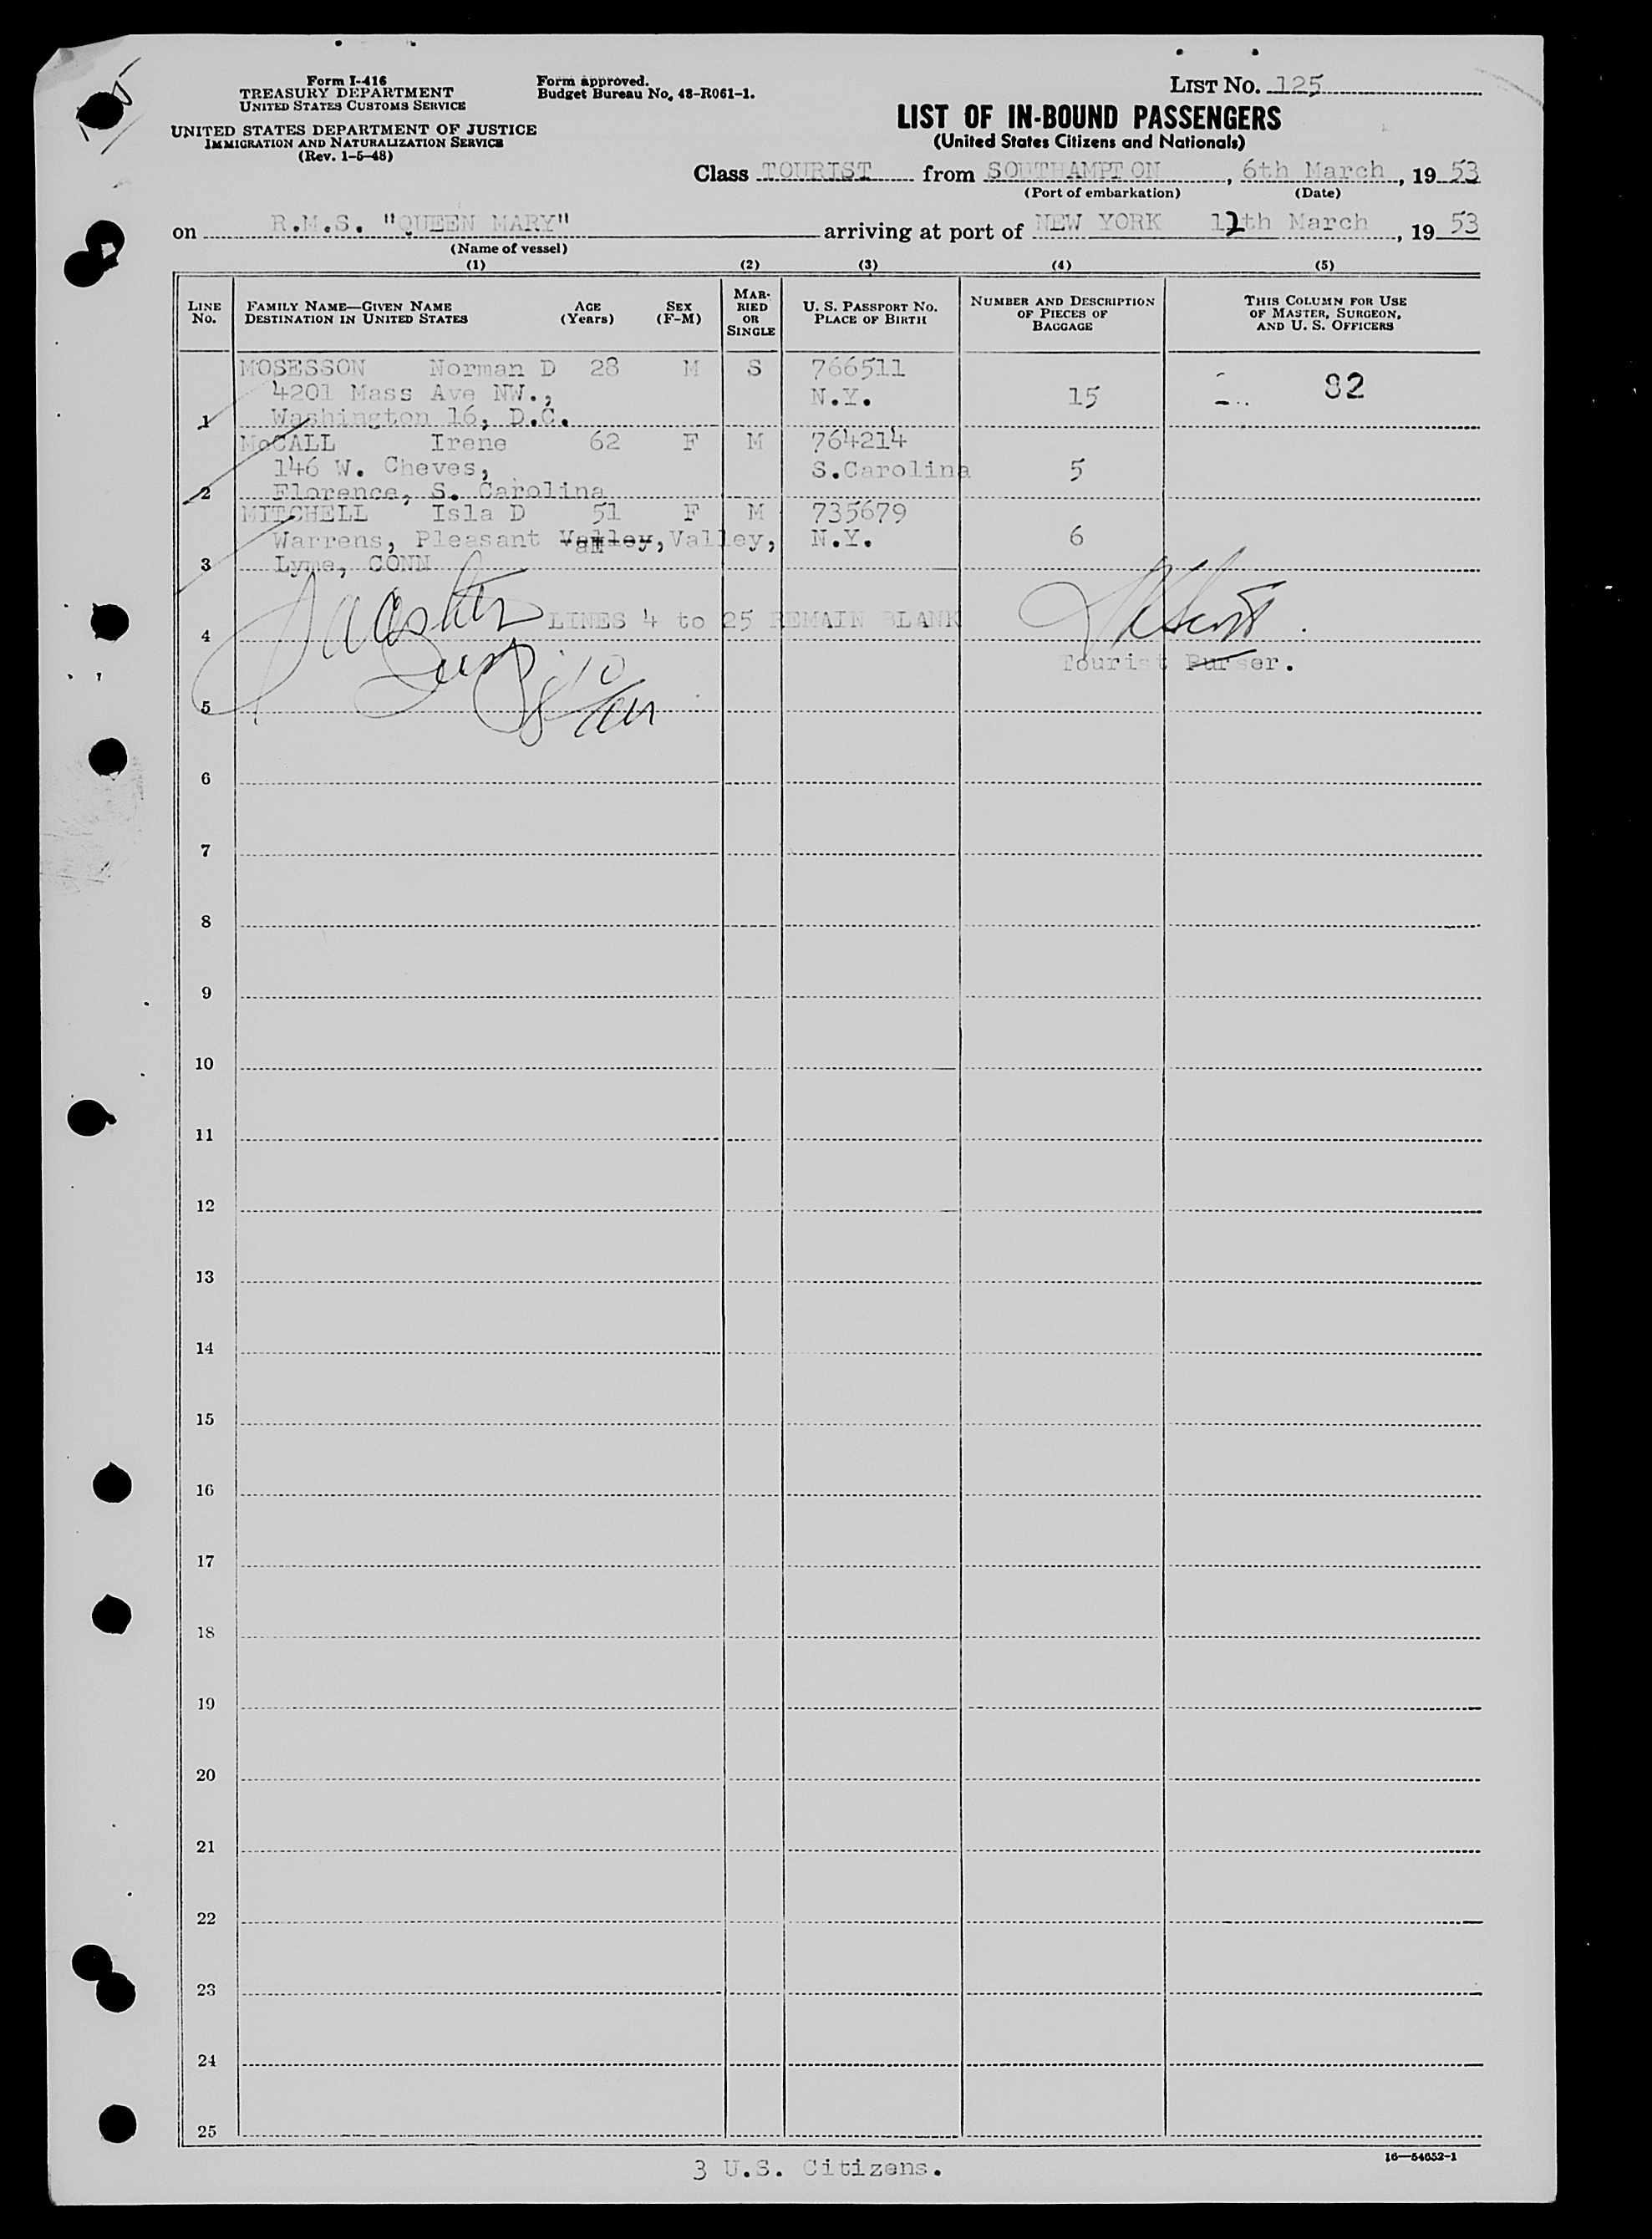 Form I-416
TREASURY DEPARTMENT
UNITED STATES CUSTOMS SERVICE
UNITED STATES DEPARTMENT OF JUSTICE
IMMIGRATION AND NATURALIZATION SERVICE
(Rev. 1-5-48)
Form approved.
Budget Bureau No. 43-R061-1.
LIST NO. 125
LIST OF IN-BOUND PASSENGERS
(United States Citizens and Nationals)
Class TOURIST from SOUTHAMPTON, 6th March, 19 53
(Port of embarkation) (Date)
on R.M.S. "QUEEN MARY" arriving at port of NEW YORK 12th March, 19 53
(Name of vessel)
(1) (2) (3) (4) (5)
LINE NO. FAMILY NAME—GIVEN NAME DESTINATION IN UNITED STATES AGE (Years) SEX (F-M) MARRIED OR SINGLE U. S. PASSPORT NO. PLACE OF BIRTH NUMBER AND DESCRIPTION OF PIECES OF BAGGAGE THIS COLUMN FOR USE OF MASTER, SURGEON, AND U. S. OFFICERS
MOSESSON Norman D 28 M S 766511
4201 Mass Ave NW., N.Y. 15 82
1 Washington 16, D.C.
McCALL Irene 62 F M 764214
146 W. Cheves, S.Carolina 5
2 Florence, S. Carolina
MITCHELL Isla D 51 F M 735679
Warrens, Pleasant Valley, Valley, N.Y. 6
3 Lyme, CONN
LINES 4 to 25 REMAIN BLANK
4
Tourist Purser.
5
6
7
8
9
10
11
12
13
14
15
16
17
18
19
20
21
22
23
24
25
16—54652-1
3 U.S. Citizens.